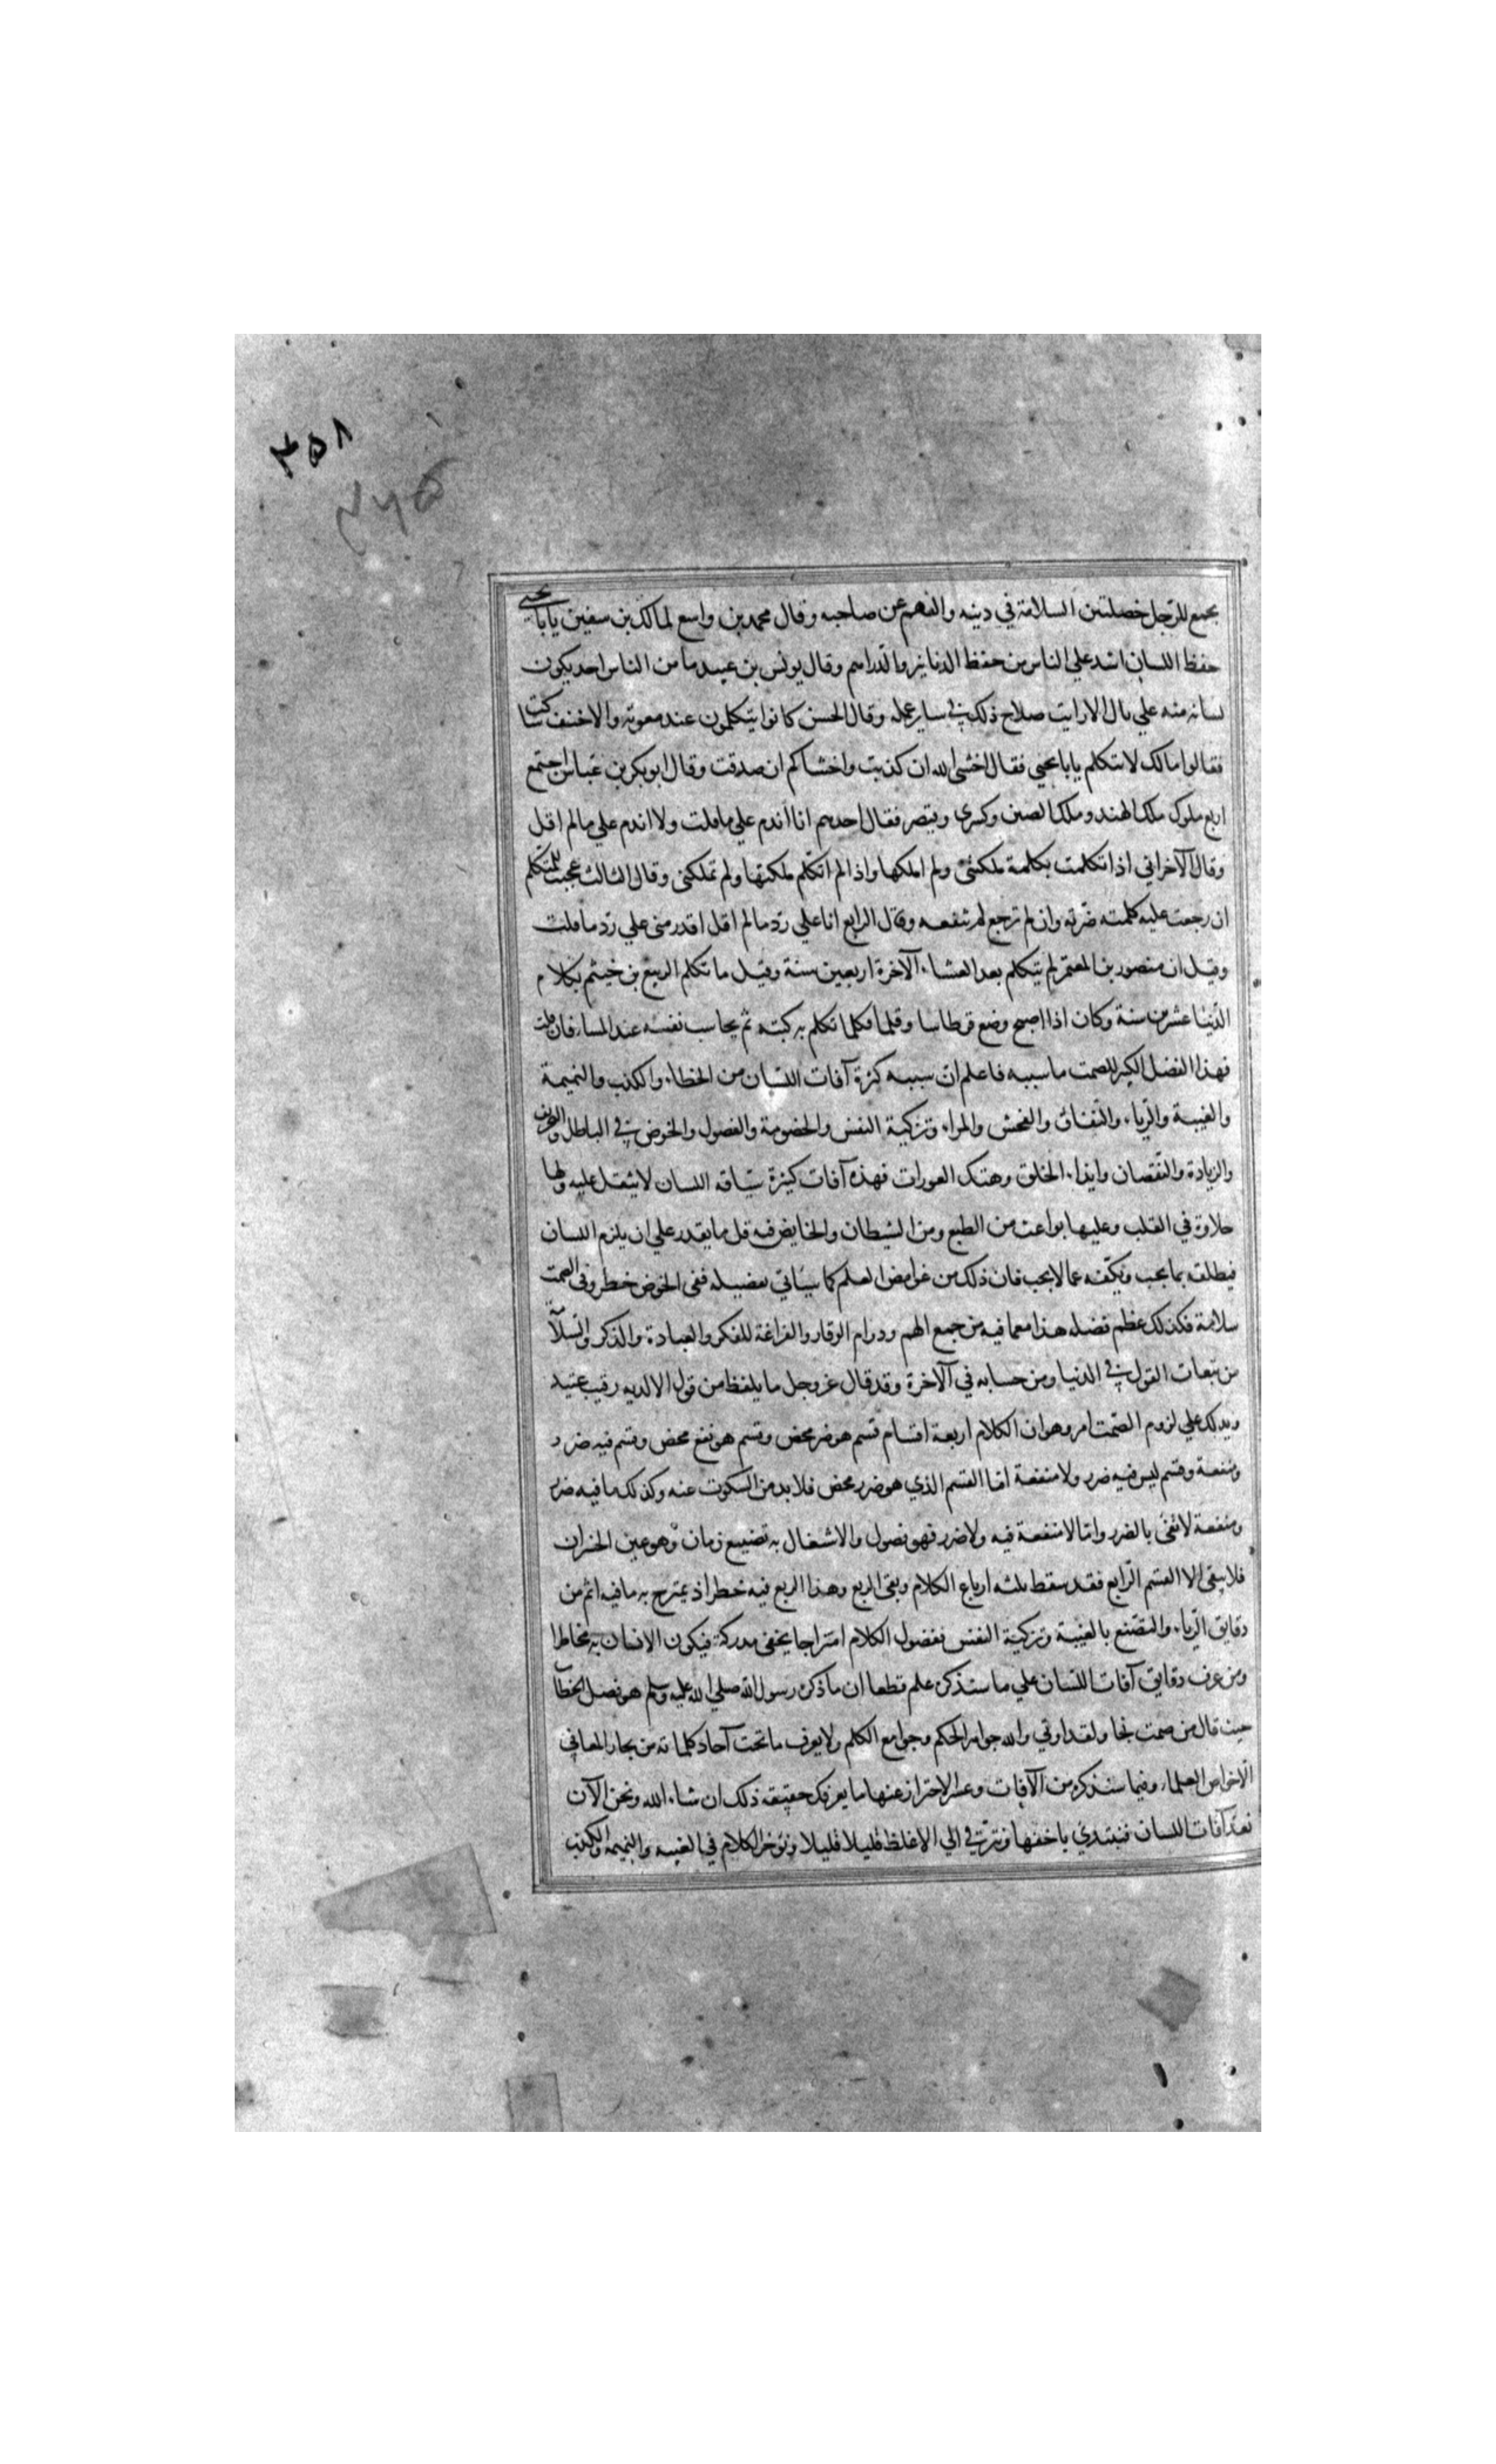 ٣٥٨
٣٦٥
يجمع للرجل خصلتين السلامة في دينه والفهم عن صاحبه وقال محمد بن واسع لمالك بن سفين يابا يحيى
حفظ اللسان اشد علي الناس من حفظ الدنانير والدراهم وقال يونس بن عبيد ما من الناس احد يكون
لسانه منه علي بال الا رايت صلاح ذلك في ساير عمله وقال الحسن كانوا يتكلمون عند معوية والاخنف ساكت
فقالوا مالك لا تتكلم يابا يحيى فقال اخشي الله ان كذبت واخشاكم ان صدقت وقال ابو بكر بن عباس اجتمع
اربع ملوك ملك الهند وملك الصين وكسري وقيصر فقال احدهم انا اندم علي ما قلت ولا اندم علي ما لم اقل
وقال الآخر اني اذا تكلمت بكلمة ملكتني ولم املكها واذا لم اتكلم ملكتها ولم تملكني وقال الثالث عجبت للمتكلم
ان رجعت عليه كلمته ضرته وان لم ترجع لم تنفعه وقال الرابع انا علي رد ما لم اقل اقدر مني علي رد ما قلت
وقيل ان منصور بن المعتمر لم يتكلم بعد العشاء الآخرة اربعين سنة وقيل ما تكلم الربيع بن خيثم بكلام
الدنيا عشرين سنة وكان اذا اصبح وضع قرطاسا وقلما فكلما تكلم به كبته ثم يحاسب نفسه عند المساء فان قلت
فهذا الفضل الكبير للصمت ما سببه فاعلم ان سببه كثرة آفات اللسان من الخطاء والكذب والنميمة
والغيبة والرياء والنفاق والفحش والمراء وتزكية النفس والخصومة والفضول والخوض في الباطل والتحريف
والزيادة والنقصان وايذاء الخلق وهتك العورات فهذه آفات كثيرة سياقة اللسان لا يثقل عليه ولها
حلاوة في القلب وعليها بواعث من الطبع ومن الشيطان والخايض فيه قل ما يقدر علي ان يلزم اللسان
فيطلقه بما يحب ويكفه عما لا يحب فان ذلك من غوامض العلم كما سياتي تفصيله ففي الخوض خطر وفي الصمت
سلامة فكذلك عظم فضله هذا مع ما فيه من جمع الهم ودوام الوقار والفراغة للفكر والعبادة والذكر والسلامة
من تبعات القول في الدنيا ومن حسابه في الآخرة وقد قال عز وجل ما يلفظ من قول الا لديه رقيب عتيد
ويدلك علي لزوم الصمت امر وهو ان الكلام اربعة اقسام قسم هو ضر محض وقسم هو نفع محض وقسم فيه ضرر
ومنفعة وقسم ليس فيه ضرر ولا منفعة اما القسم الذي هو ضرر محض فلا بد من السكوت عنه وكذلك ما فيه ضرر
ومنفعة لا تفي بالضرر واما لا منفعة فيه ولا ضرر فهو فضول والاشغال به تضييع زمان وهو عين الخسران
فلا يبقي الا القسم الرابع فقد سقط ثلثه ارباع الكلام وبقي الربع وهذا الربع فيه خطر اذ يمتزج به ما فيه اثم من
دقايق الرياء والتصنع بالغيبة وتزكية النفس بفضول الكلام امتزاجا يخفي مدركه فيكون الانسان به مخاطرا
ومن عرف دقايق آفات اللسان علي ما سنذكره علم قطعا ان ما ذكره رسول الله صلي الله عليه وسلم هو فصل الخطاب
حيث قال من صمت نجا ولقد اوتي والله جواهر الحكم وجوامع الكلم ولا يعرف ما تحت آحاد كلماته من بحار المعاني
الا خواص العلماء وفيما سنذكره من الآفات وعسر الاحتراز عنها ما يعرفك حقيقة ذلك ان شاء الله ونحن الآن
نعد آفات اللسان فنبتدي باخفها ونترقي الي الاغلظ قليلا قليلا ونوخر الكلام في الغيبه والنميمه والكذب